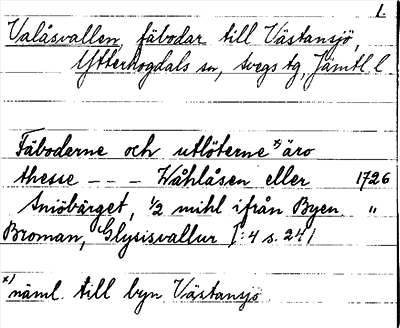 1.
Valåsvallen, fäbodar till Västansjö,
Ytterhogdals sn, Svegs tg, Jämtl. l
Fäbodarne och utlöterne x) äro
thesse - - - Wåhlåsen eller 1726
Sniöbärget, 1/2 mihl ifrån Byen "
Broman, Glysisvallur [: 4 s. 24]
x) näml. till byn Västansjö